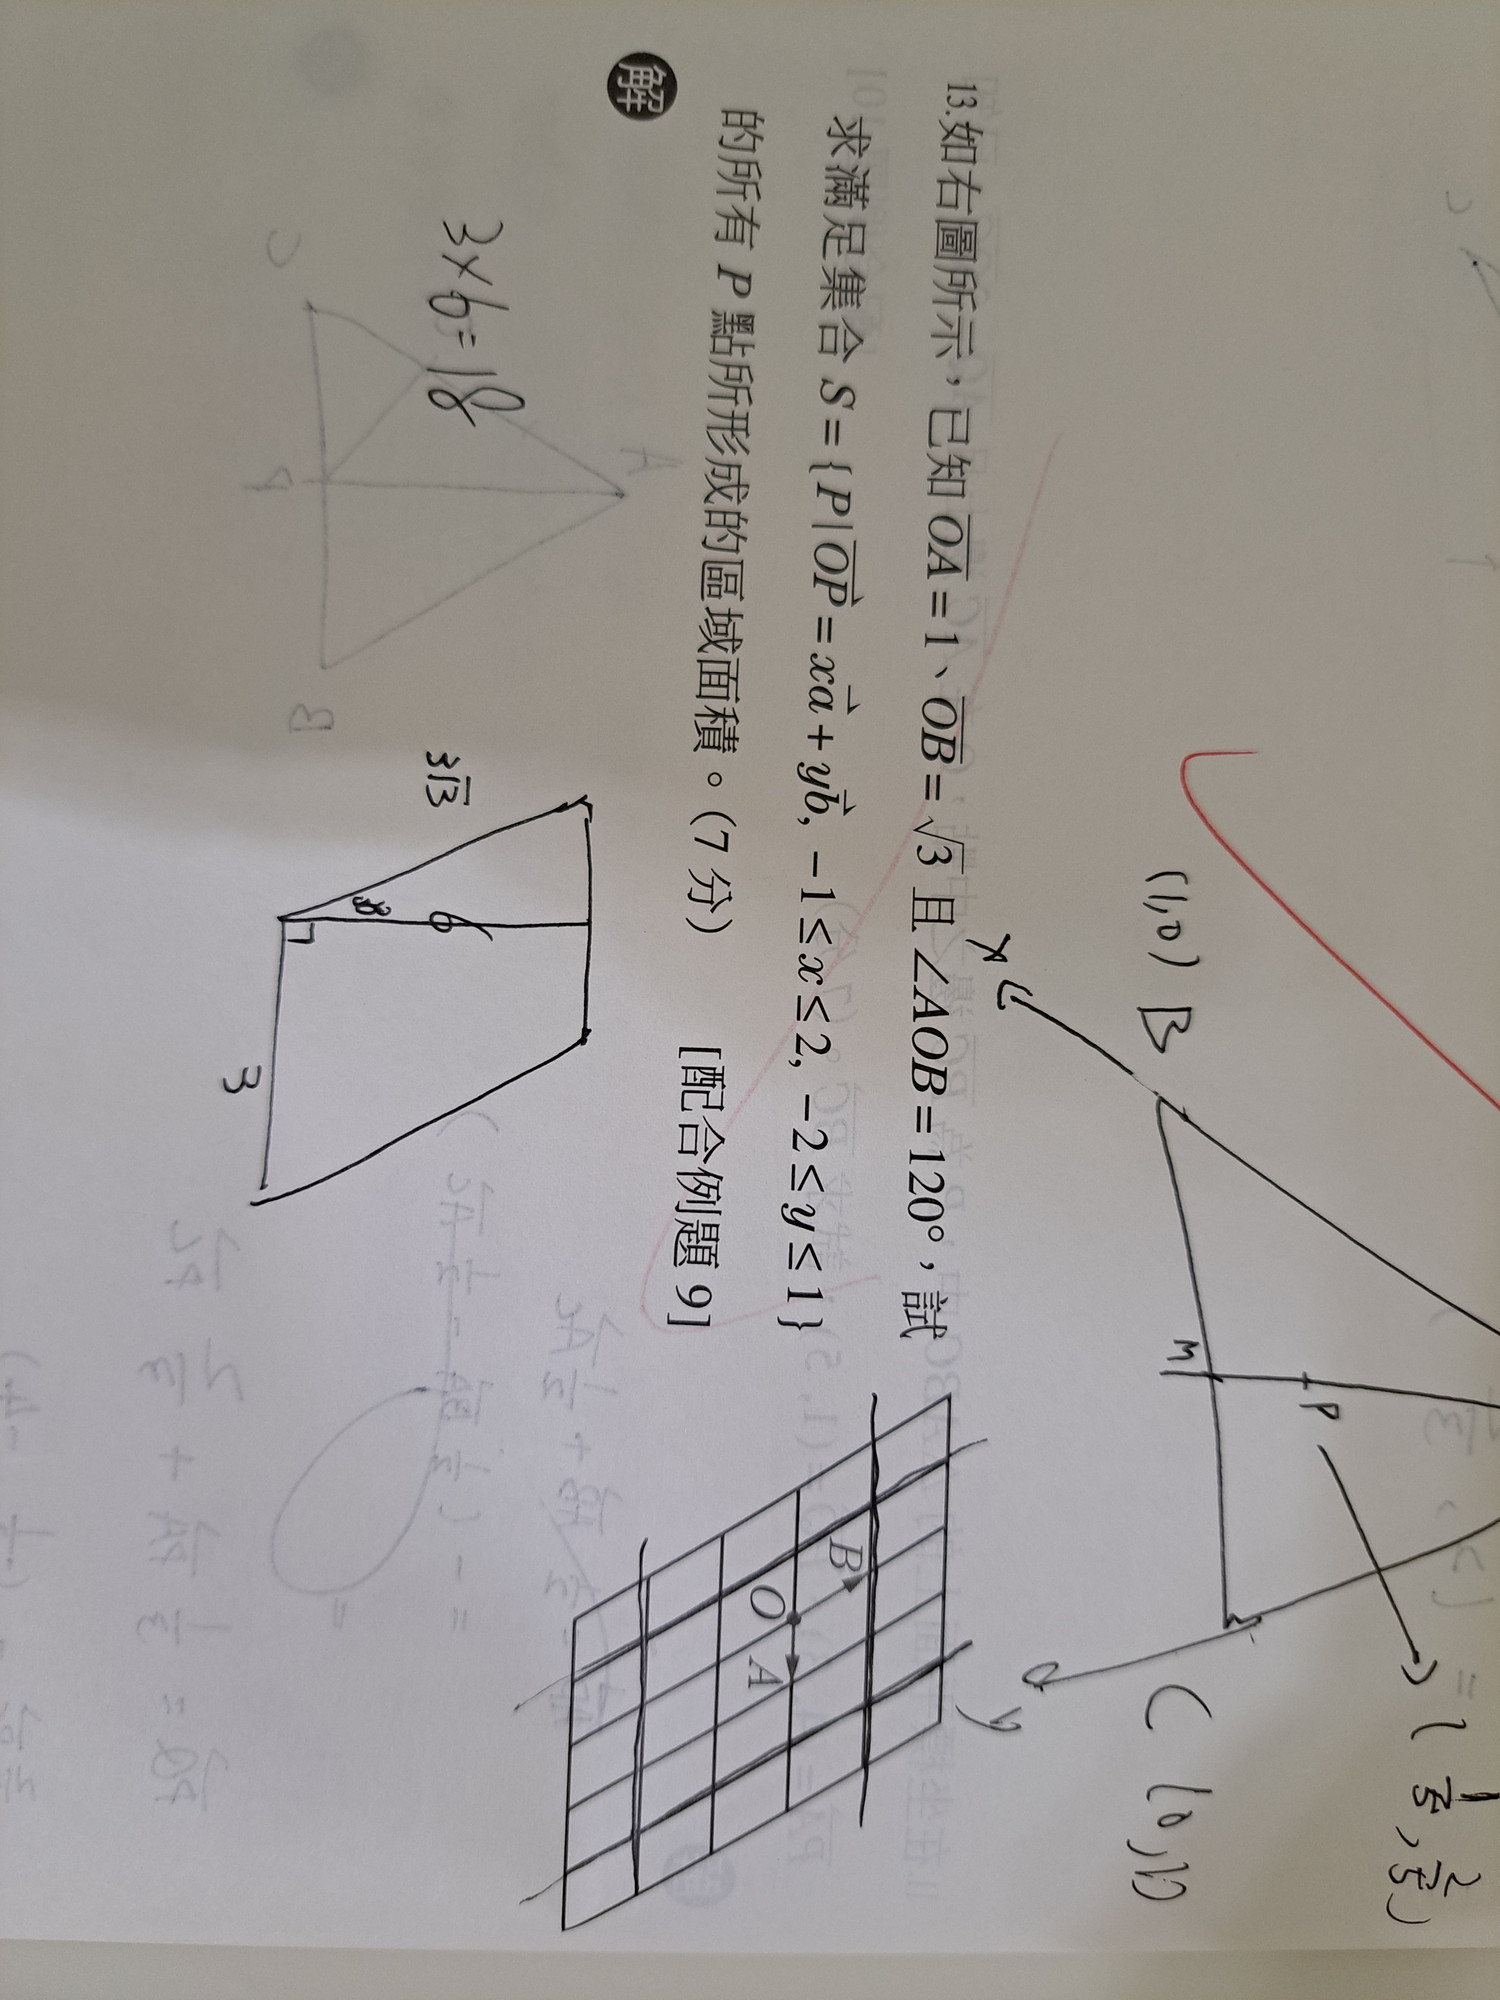 (1,0) B
M
P
( \frac{1}{5}, \frac{2}{5} )
x
y
C (0,1)
13.如右圖所示,已知 \overline{OA} = 1、\overline{OB} = √3 且 ∠AOB = 120°,試
求滿足集合 S = { P | \overrightarrow{OP} = x\vec{a} + y\vec{b}, −1 ≤ x ≤ 2, −2 ≤ y ≤ 1 }
的所有 P 點所形成的區域面積。(7 分) [配合例題 9]
B
O
A
解
3×6=18
3√3
6
3